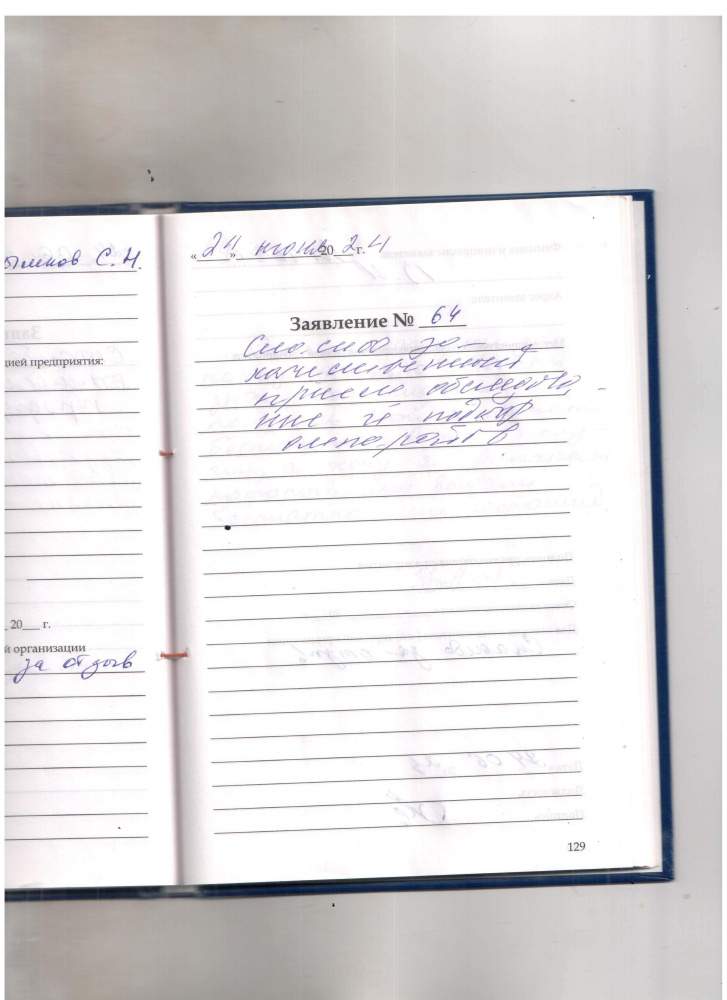 С. Н.
цией предприятия:
20___ г.
й организации
за отзыв
«24» июня 2024 г.
Заявление № 64
Спасибо за
качественный
прием обследова-
ние и подбор
129